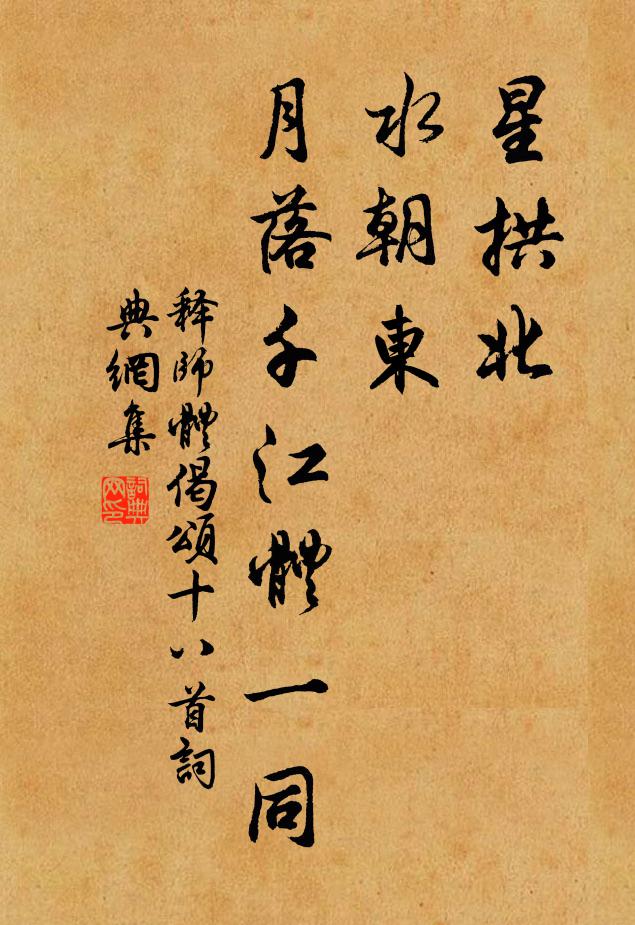 星拱北
水朝東
月落千江體一同
释師體偈頌十八首詞
典網集
詞典
网印